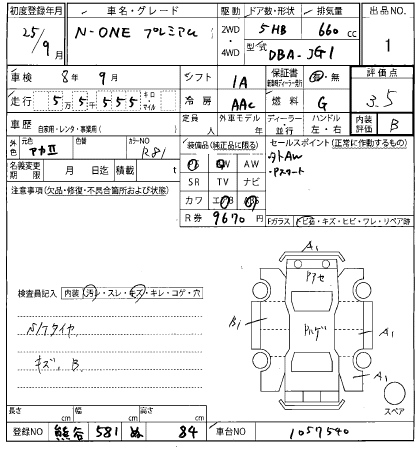 初度登録年月 車名・グレード 駆動 ドア数・形状 排気量 出品NO.
25/9月 N-ONE プレミアム 2WD・4WD 5HB 660cc 1
型式 DBA-JG1
車検 8年9月 シフト IA 保証書 有・無 評価点
走行 5万5千555 キロ・マイル 冷房 AAC 燃料 G 3.5
車歴 自家用・レンタ・事業用( ) 定員 人 外車モデル 年 ディーラー・並行 ハンドル 左・右 内装評価 B
外色 元色 アカⅡ 色替 カラーNO R81 装備品(純正品に限る) セールスポイント(正常に動作するもの)
PS PW AW 社外AW
名義変更期限 月 日迄 積載 t SR TV ナビ ・Pスタート
注意事項(欠品・修復・不具合箇所および状態) カワ エアB ABS
R券 9670円 Fガラス トビ石・キズ・ヒビ・ワレ・リペア跡
A1
Pアセ
検査員記入 内装(汚レ・スレ・キズ・キレ・コゲ・穴
B1 Pハゲ A1
N/Tタイヤ
キズ、B. A1
スペア
長さ cm 幅 cm 高さ cm
登録NO 熊谷 581 ぬ 84 車台NO 1057540